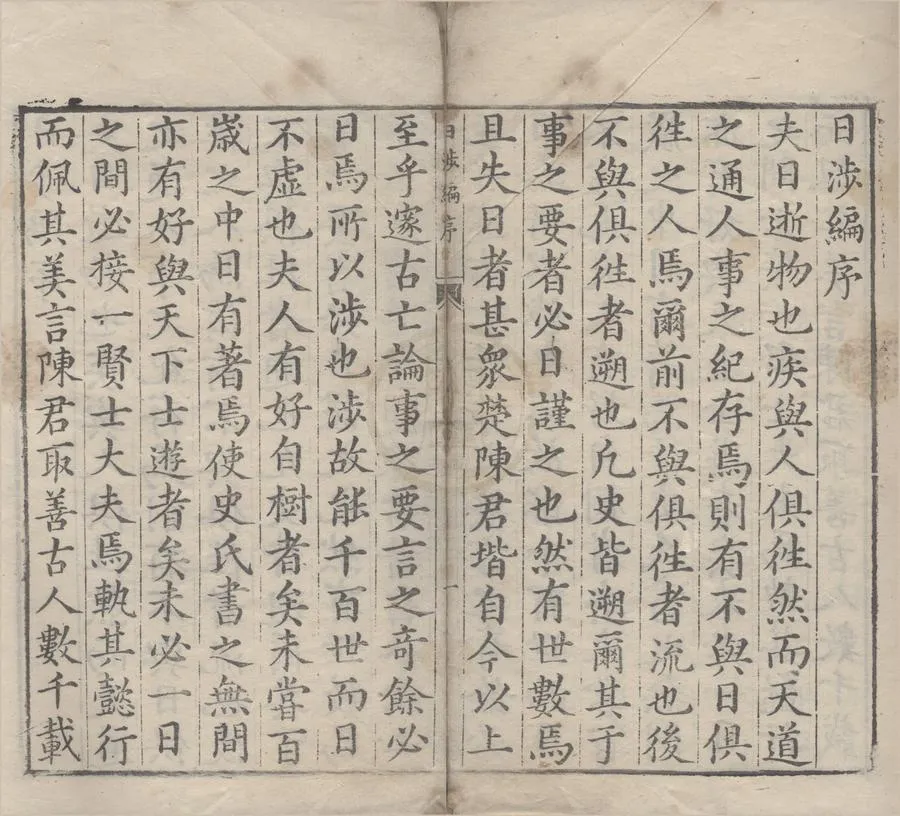 日涉編序
夫日逝物也疾與人俱徃然而天道
之通人事之紀存焉則有不與日俱
徃之人焉爾前不與俱徃者流也後
不與俱徃者遡也凡史皆遡爾其于
事之要者必日謹之也然有世數焉
且失日者甚衆楚陳君堦自今以上
日涉編序
一
至乎邃古亡論事之要言之奇餘必
日焉所以涉也涉故能千百世而日
不虛也夫人有好自樹者矣未嘗百
歳之中日有著焉使史氏書之無間
亦有好與天下士遊者矣未必一日
之間必接一賢士大夫焉執其懿行
而佩其美言陳君取善古人數千載